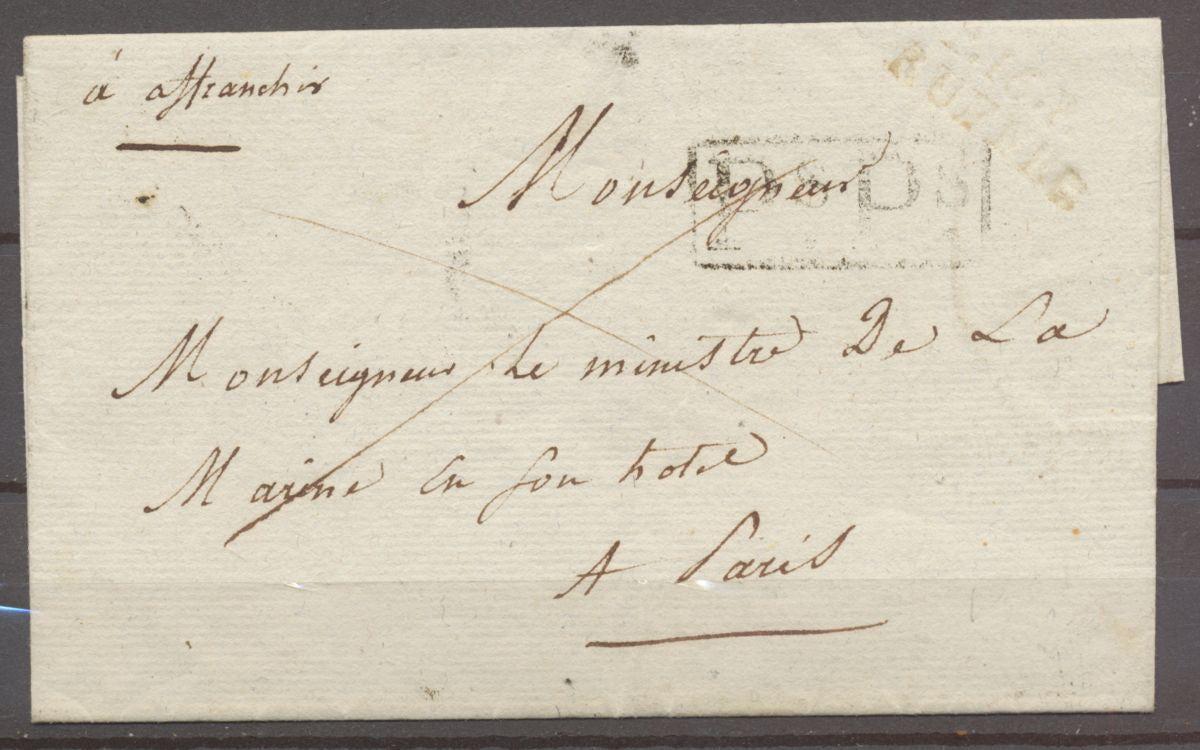 à affranchir
Monseigneur
Monseigneur le ministre De La
Marine en son hotel
A Paris